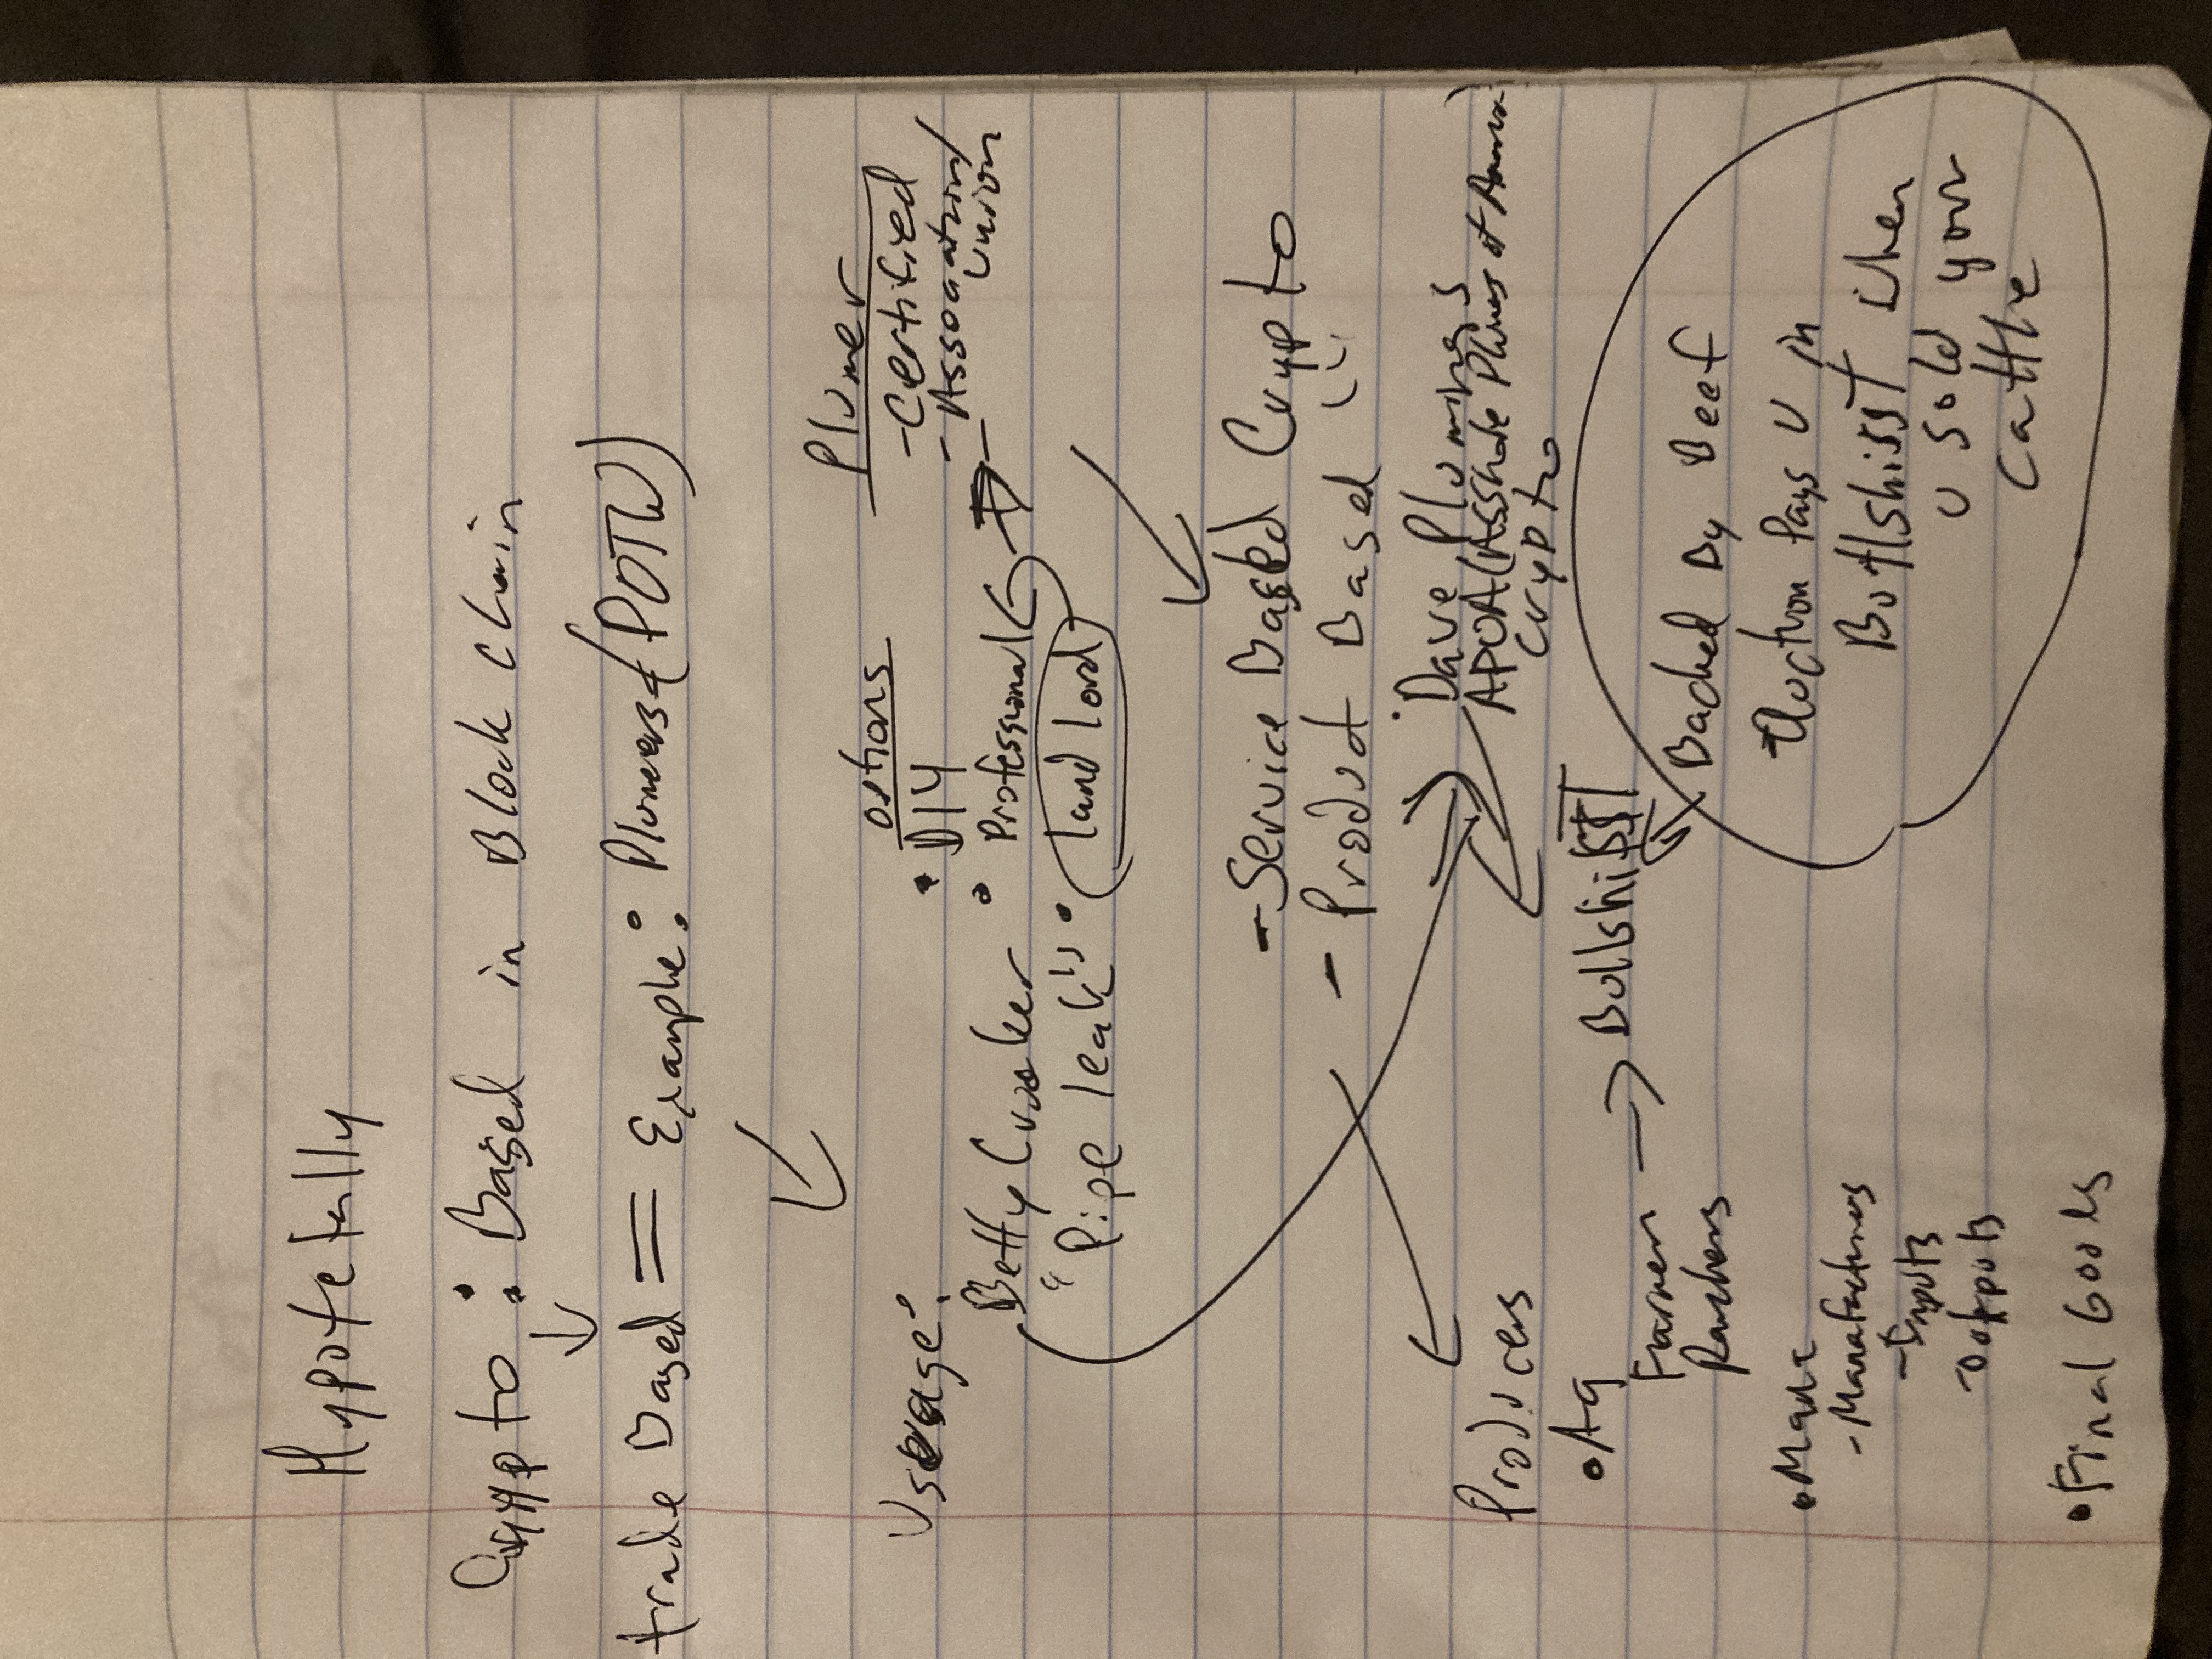 Hypotetally
Crypto : Based in Block Chain
trade Based = Example: Plumers (POTW)
Useage:
options
• DIY
• Professional
• land lord
Plumer
- Certified
- Assoaation/
Union
Betty Crocker
"Pipe leak"
- Service Based Crypto
- Product Based " "
• Dave Plumings
APOA (Asshole Plumes of America)
Crypto
Producers
• Ag
Farmer → Bullshisst
Ranchers
Backed By Beef
Auction Pays U in
Bullshisst when
U sold your
Cattle
• Manf
- Manafactures
- Inputs
- Outputs
• Final Goods